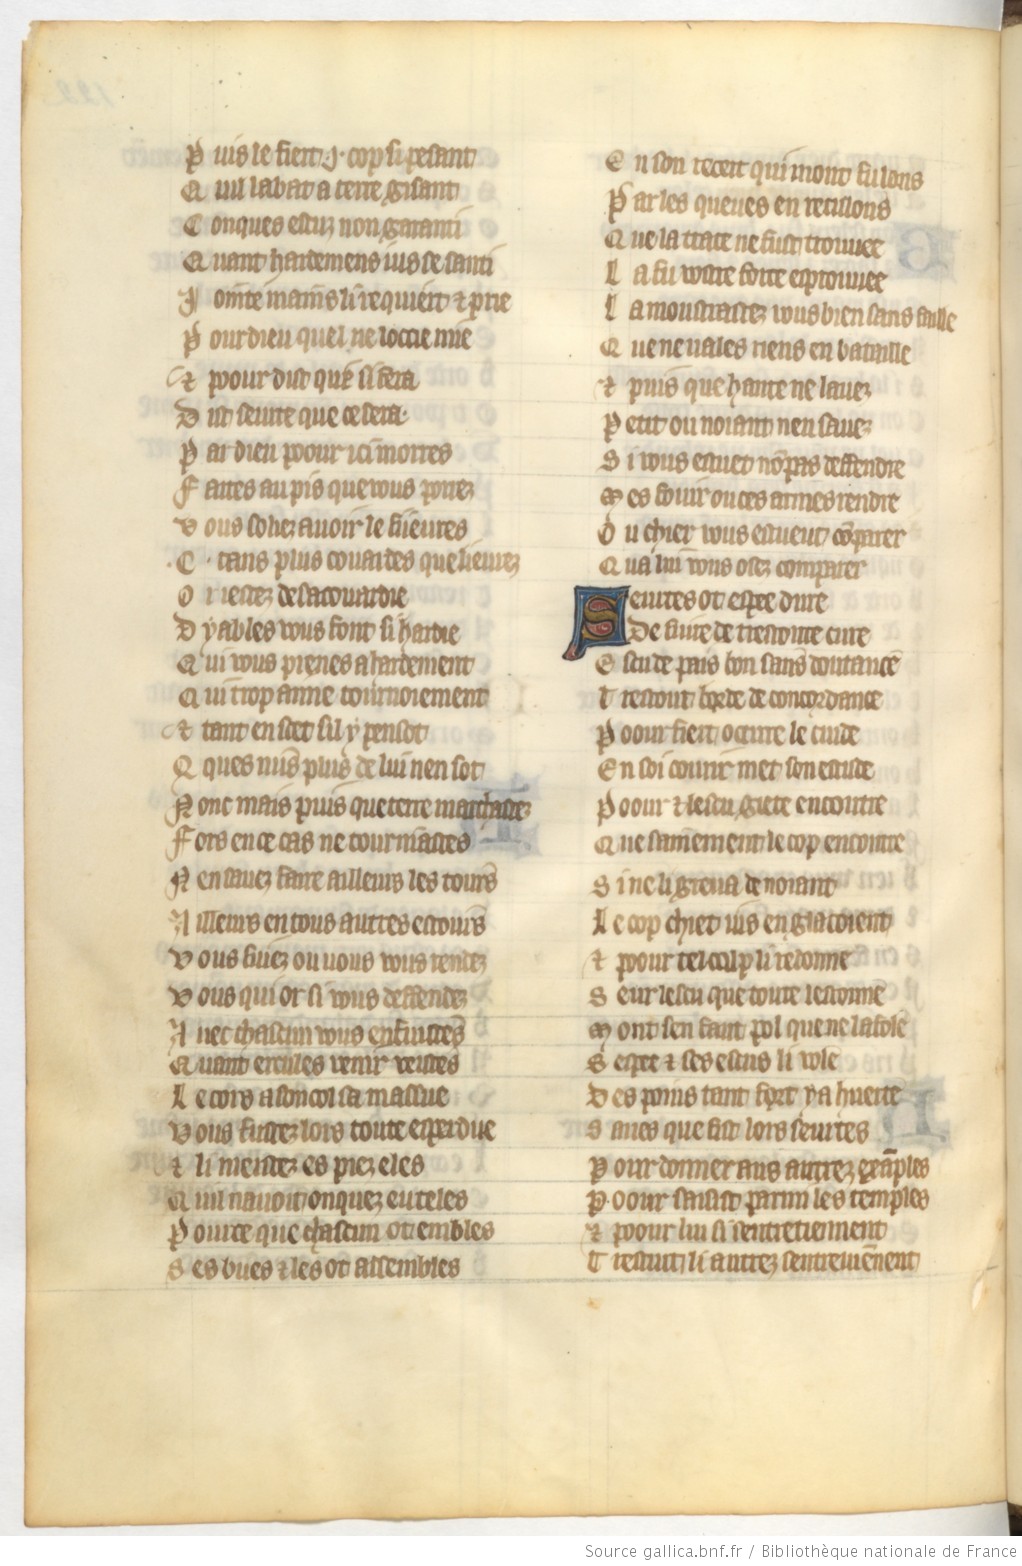 P uis le fiert .j. cop si pesant
Q uil labat a terre gisant
C onques escuz non garanti
Q uant hardemens uis se santi
J ointe mains li requiert & prie
P our dieu quel ne loccie mie
& poour dist que si fera
D ist seurte que ce sera
P ar dieu poour ici morres
F aites au pis que vous porrez
V ous soliez auoir le fieures
.C. tans plus couardes que lieures
O r iestez desacouardie
D yables vous font si hardie
Q ui vous prenes a hardement
Q ui trop anme tournoiement
& tant en scet sil y pensot
Q ques nus plus de lui nen sot
N onc mais puis que terre marchastez
F ors en ce cas ne tournastes
N en sauez faire ailleurs les tours
A illeurs en tous autres estours
V ous fuiez ou vous vous rendez
V ous qui or si vous deffendez
A uec chacun vous enfuistes
Q uant ercules venir veistes
L e cors a son col sa massue
V ous fustez lors toute esperdue
& li meistez es piez eles
Q uil nauoit onquez eu teles
P our ce que chacun ot embles
S es bues & les ot assembles
E n son recent qui mont fu lons
P ar les queues en reculons
Q ue la trace ne fust trouuee
L a fu vostre force esprouuee
L a moustrastez vous bien sans faille
Q ue ne vales riens en bataille
& puis que hante ne lauez
P etit ou noiant nen sauez
S i vous estuet non pas deffendre
M es fouir ou ces armes rendre
O u chier vous estuent comparer
Q ua lui vous osez comparer
S eurtes ot espee dure
De fuite de trestoute cure
E scu de pais bon sans doutance
T restout borde de concordance
P oour fiert occirre le cuide
E n soi couurir met son estuide
P oour & lescu giete encontre
Q ue sainnement le cop encontre
S i ne li greua de noiant
L e cop chiet ius en glacoient
& poour tel colp li redonne
S eur lescu que toute lestonne
M ont sen faut pol que ne lafole
S espee & ses escus li vole
D es poins tant fort y a hurte
S aues que fist lors seurtes
P our donner aus autrez examples
P oour saisist parmi les temples
& poour lui si sentretiennent
T restuit li autrez sentreuienent
Source gallica.bnf.fr / Bibliothèque nationale de France